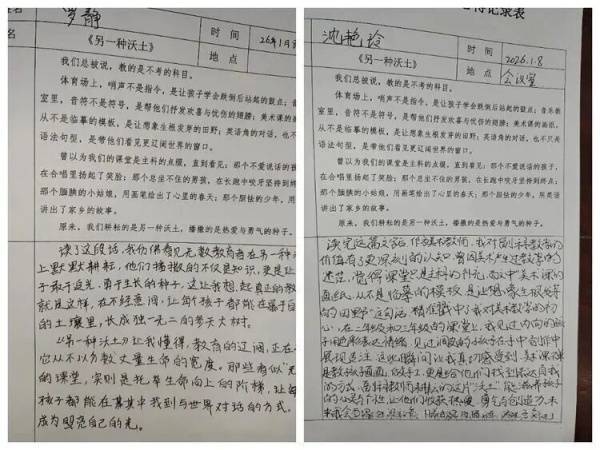 罗静
名
《另一种沃土》
时间
26年1月
地点
我们总被说，教的是不考的科目。
体育场上，哨声不是指令，是让孩子学会跌倒后站起的鼓点；音乐教
室里，音符不是符号，是帮他们抒发欢喜与忧伤的翅膀；美术课的画纸，
从不是临摹的模板，是让想象生根发芽的田野；英语角的对话，也不只
语法句型，是带着看见更辽阔世界的窗口。
曾以为我们的课堂是主科的点缀，直到看见：那个不爱说话的孩子，
在合唱里扬起了笑脸；那个总坐不住的男孩，在长跑中咬牙坚持到终点；
那个腼腆的小姑娘，用画笔绘出了心里的春天；那个胆怯的少年，用英
讲出了家乡的故事。
原来，我们耕耘的是另一种沃土，播撒的是热爱与勇气的种子。
读了这段话，我仿佛看见无数教育者在另一种
上默默耕耘，他们播撒的不仅是知识，更是让
子敢于追光、勇于生长的种子。这让我想起真正的教
就是这样，在不经意间，让每个孩子都能在属于自
的土壤里，长成独一无二的参天大树。
《另一种沃土》让我懂得，教育的辽阔，正在
它从不以分数丈量生命的宽度。那些看似"无
的课堂，实则是托举生命向上的阶梯，让每
孩子都能在其中找到与世界对话的方式，
成为照亮自己的光。
记录表
沈艳玲
《另一种沃土》
时间
2026.1.8
地点
会议室
我们总被说，教的是不考的科目。
体育场上，哨声不是指令，是让孩子学会跌倒后站起的鼓点；音乐教
室里，音符不是符号，是帮他们抒发欢喜与忧伤的翅膀；美术课的画纸，
从不是临摹的模板，是让想象生根发芽的田野；英语角的对话，也不只
语法句型，是带他们看见更辽阔世界的窗口。
曾以为我们的课堂是主科的点缀，直到看见：那个不爱说话的孩子，
在合唱里扬起了笑脸；那个总坐不住的男孩，在长跑中咬牙坚持到终点；
那个腼腆的小姑娘，用画笔绘出了心里的春天；那个胆怯的少年，用英
语讲出了家乡的故事。
原来，我们耕耘的是另一种沃土，播撒的是热爱与勇气的种子。
读完这篇文章，作为美术教师，我对副科教学的
价值有了更深刻的认识。曾因美术
迷茫，觉得课堂只是主科的补充，而文中"美术课的
画纸，从不是临摹的模板，是让想象生根发芽
的田野"这句话，精准戳中了我对美术教学的初
心。在二年级和三年级的课堂上，我见过内向的孩
子用色彩表达情绪，见过调皮的孩子在手中创作中
展现专注，这些瞬间让我真切感受到，美术课不
是教孩子画画、做手工，更是给他们找到表达自我
的方式。
的心灵与个性，让他们收获热爱、勇气与创造力。未